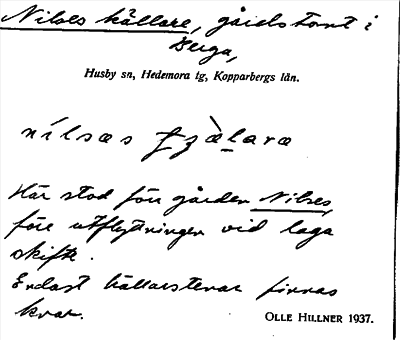 Nilses källare, gårdstomt i
Berga,
Husby sn, Hedemora tg, Kopparbergs län.
nílsas
Här stod förr gården Nilses,
före utflyttningen vid laga
skifte.
Endast källarstenar finnas
kvar.
OLLE HILLNER 1937.